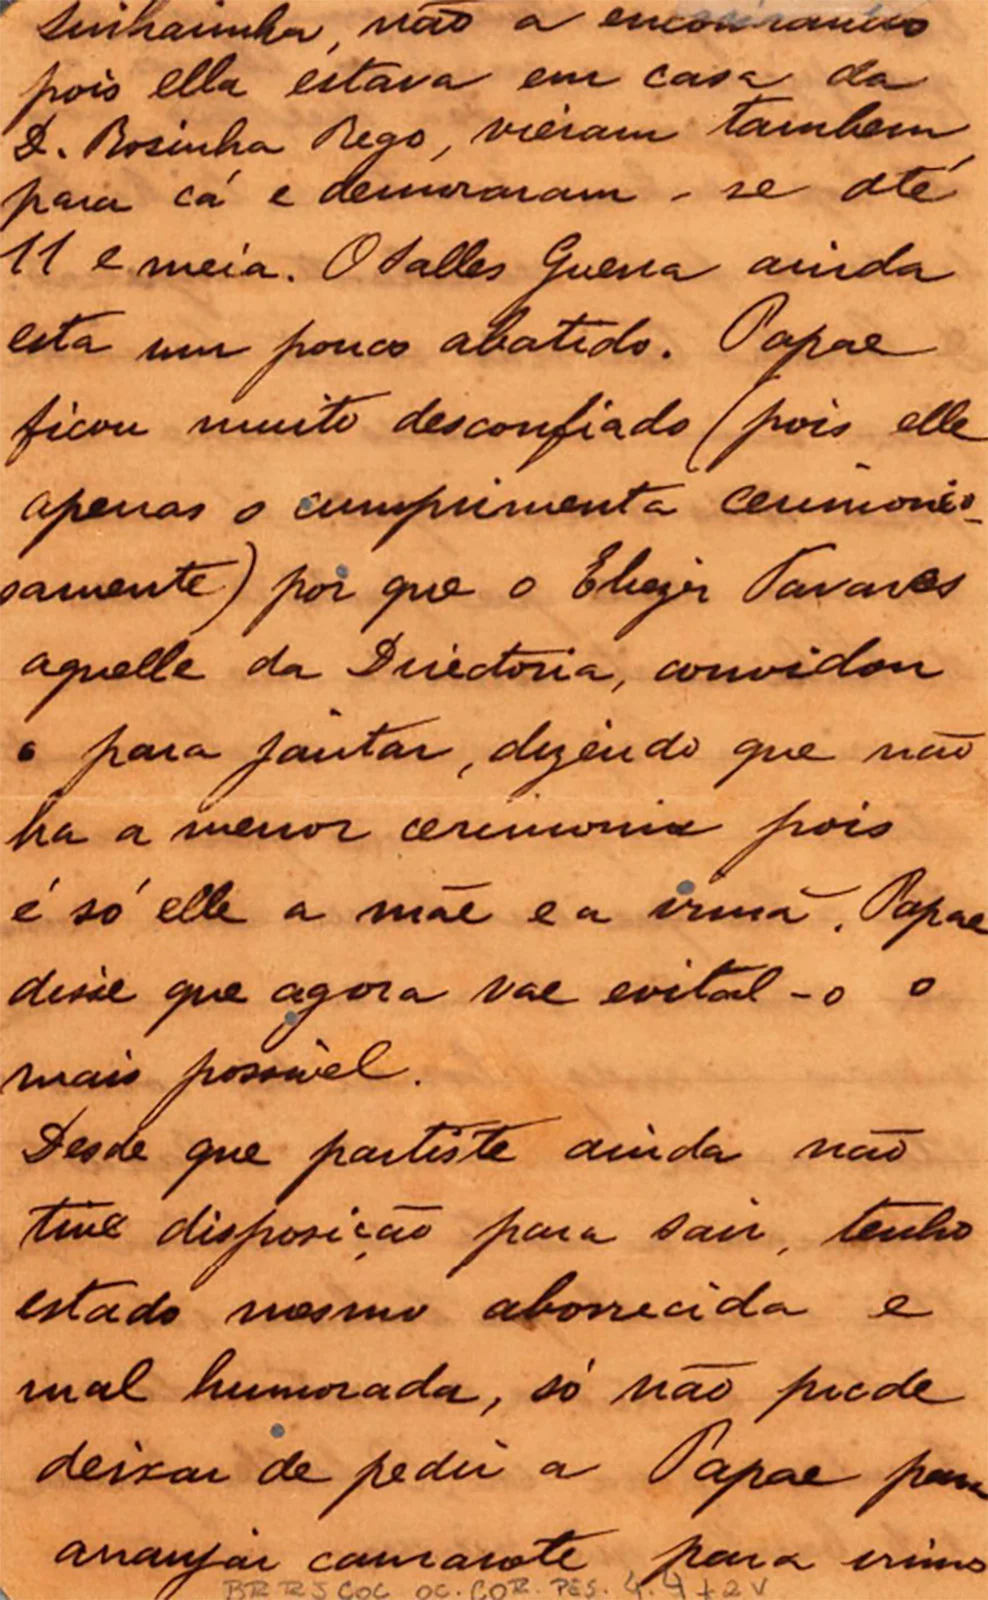 Sinhasinha, não a encontrando
pois ella estava em casa da
D. Rosinha Rego, vieram tambem
para cá e demoraram-se até
11 e meia. O Salles Guerra ainda
esta um pouco abatido. Papae
ficou muito desconfiado (pois elle
apenas o cumprimenta cerimonio-
samente) por que o Eliezer Tavares
aquelle da Directoria, convidou
o para jantar, dizendo que não
ha a menor cerimonia pois
é só elle a mãe e a irmã. Papae
disse que agora vae evital-o o
mais possivel.
Desde que partiste ainda não
tive disposição para sair, tenho
estado mesmo aborrecida e
mal humorada, só não pude
deixar de pedir a Papae para
arranjar camarote para irmos
BR RJ COC OC.COR.PES. 4.4 f 2 v